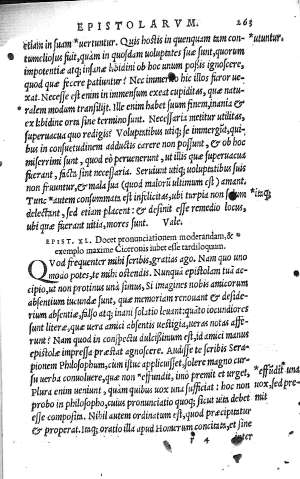 EPISTOLARVM. 263
etiam in suam *uertuntur. Quis hostis in quenquam tam con- *utuntur.
tumeliosus fuit, quàm in quosdam uoluptates suæ sunt, quorum
impotentiæ atq; insanæ libidini ob hoc unum possis ignoscere,
quod quæ fecere patiuntur? Nec immeritò hic illos furor ue-
xat. Necesse est enim in immensum exeat cupiditas, quæ natu-
ralem modum transilijt. Ille enim habet suum finem, inania &
ex libidine orta sine termino sunt. Necessaria metitur utilitas,
superuacua quò redigis? Voluptatibus utiq; se immergũt, qui-
bus in consuetudinem adductis carere non possunt, & ob hoc
miserrimi sunt, quod eò peruenerunt, ut illis quæ superuacua
fuerant, facta sint necessaria. Seruiunt utiq; uoluptatibus suis
non fruuntur, & mala sua (quod maiorũ ultimum est) amant.
Tunc *autem consummata est infelicitas, ubi turpia non solum *itaq;
delectant, sed etiam placent: & desinit esse remedio locus,
ubi quæ fuerant uitia, mores sunt. Vale.
EPIST. XL. Docet pronunciationem moderandam, &
exemplo maxime Ciceronis iubet esse tardiloquum.
QVod frequenter mihi scribis, gratias ago. Nam quo uno
modo potes, te mihi ostendis. Nunquã epistolam tuã ac-
cipio, ut non protinus unà simus. Si imagines nobis amicorum
absentium iucundæ sunt, quæ memoriam renouant & deside-
rium absentiæ, falso atq; inani solatio leuant: quàto iocundiores
sunt literæ, quæ uera amici absentis uestigia, ueras notas affe-
runt? Nam quod in conspectu dulcissimum est, id amici manus
epistolæ impressa præstat agnoscere. Audisse te scribis Sera-
pionem Philosophum, cum istuc applicuisset, solere magno cur-
su uerba conuoluere, quæ non *effundit, imò premit et urget, *effũdit una
Plura enim ueniunt, quàm quibus uox una sufficiat: hoc non uox, sed pre-
probo in philosopho, cuius pronunciatio quoq; sicut uita debet mit
esse composita. Nihil autem ordinatum est, quod præcipitatur
& properat. Itaq; oratio illa apud Homerum concitata, et sine
r 4 inter